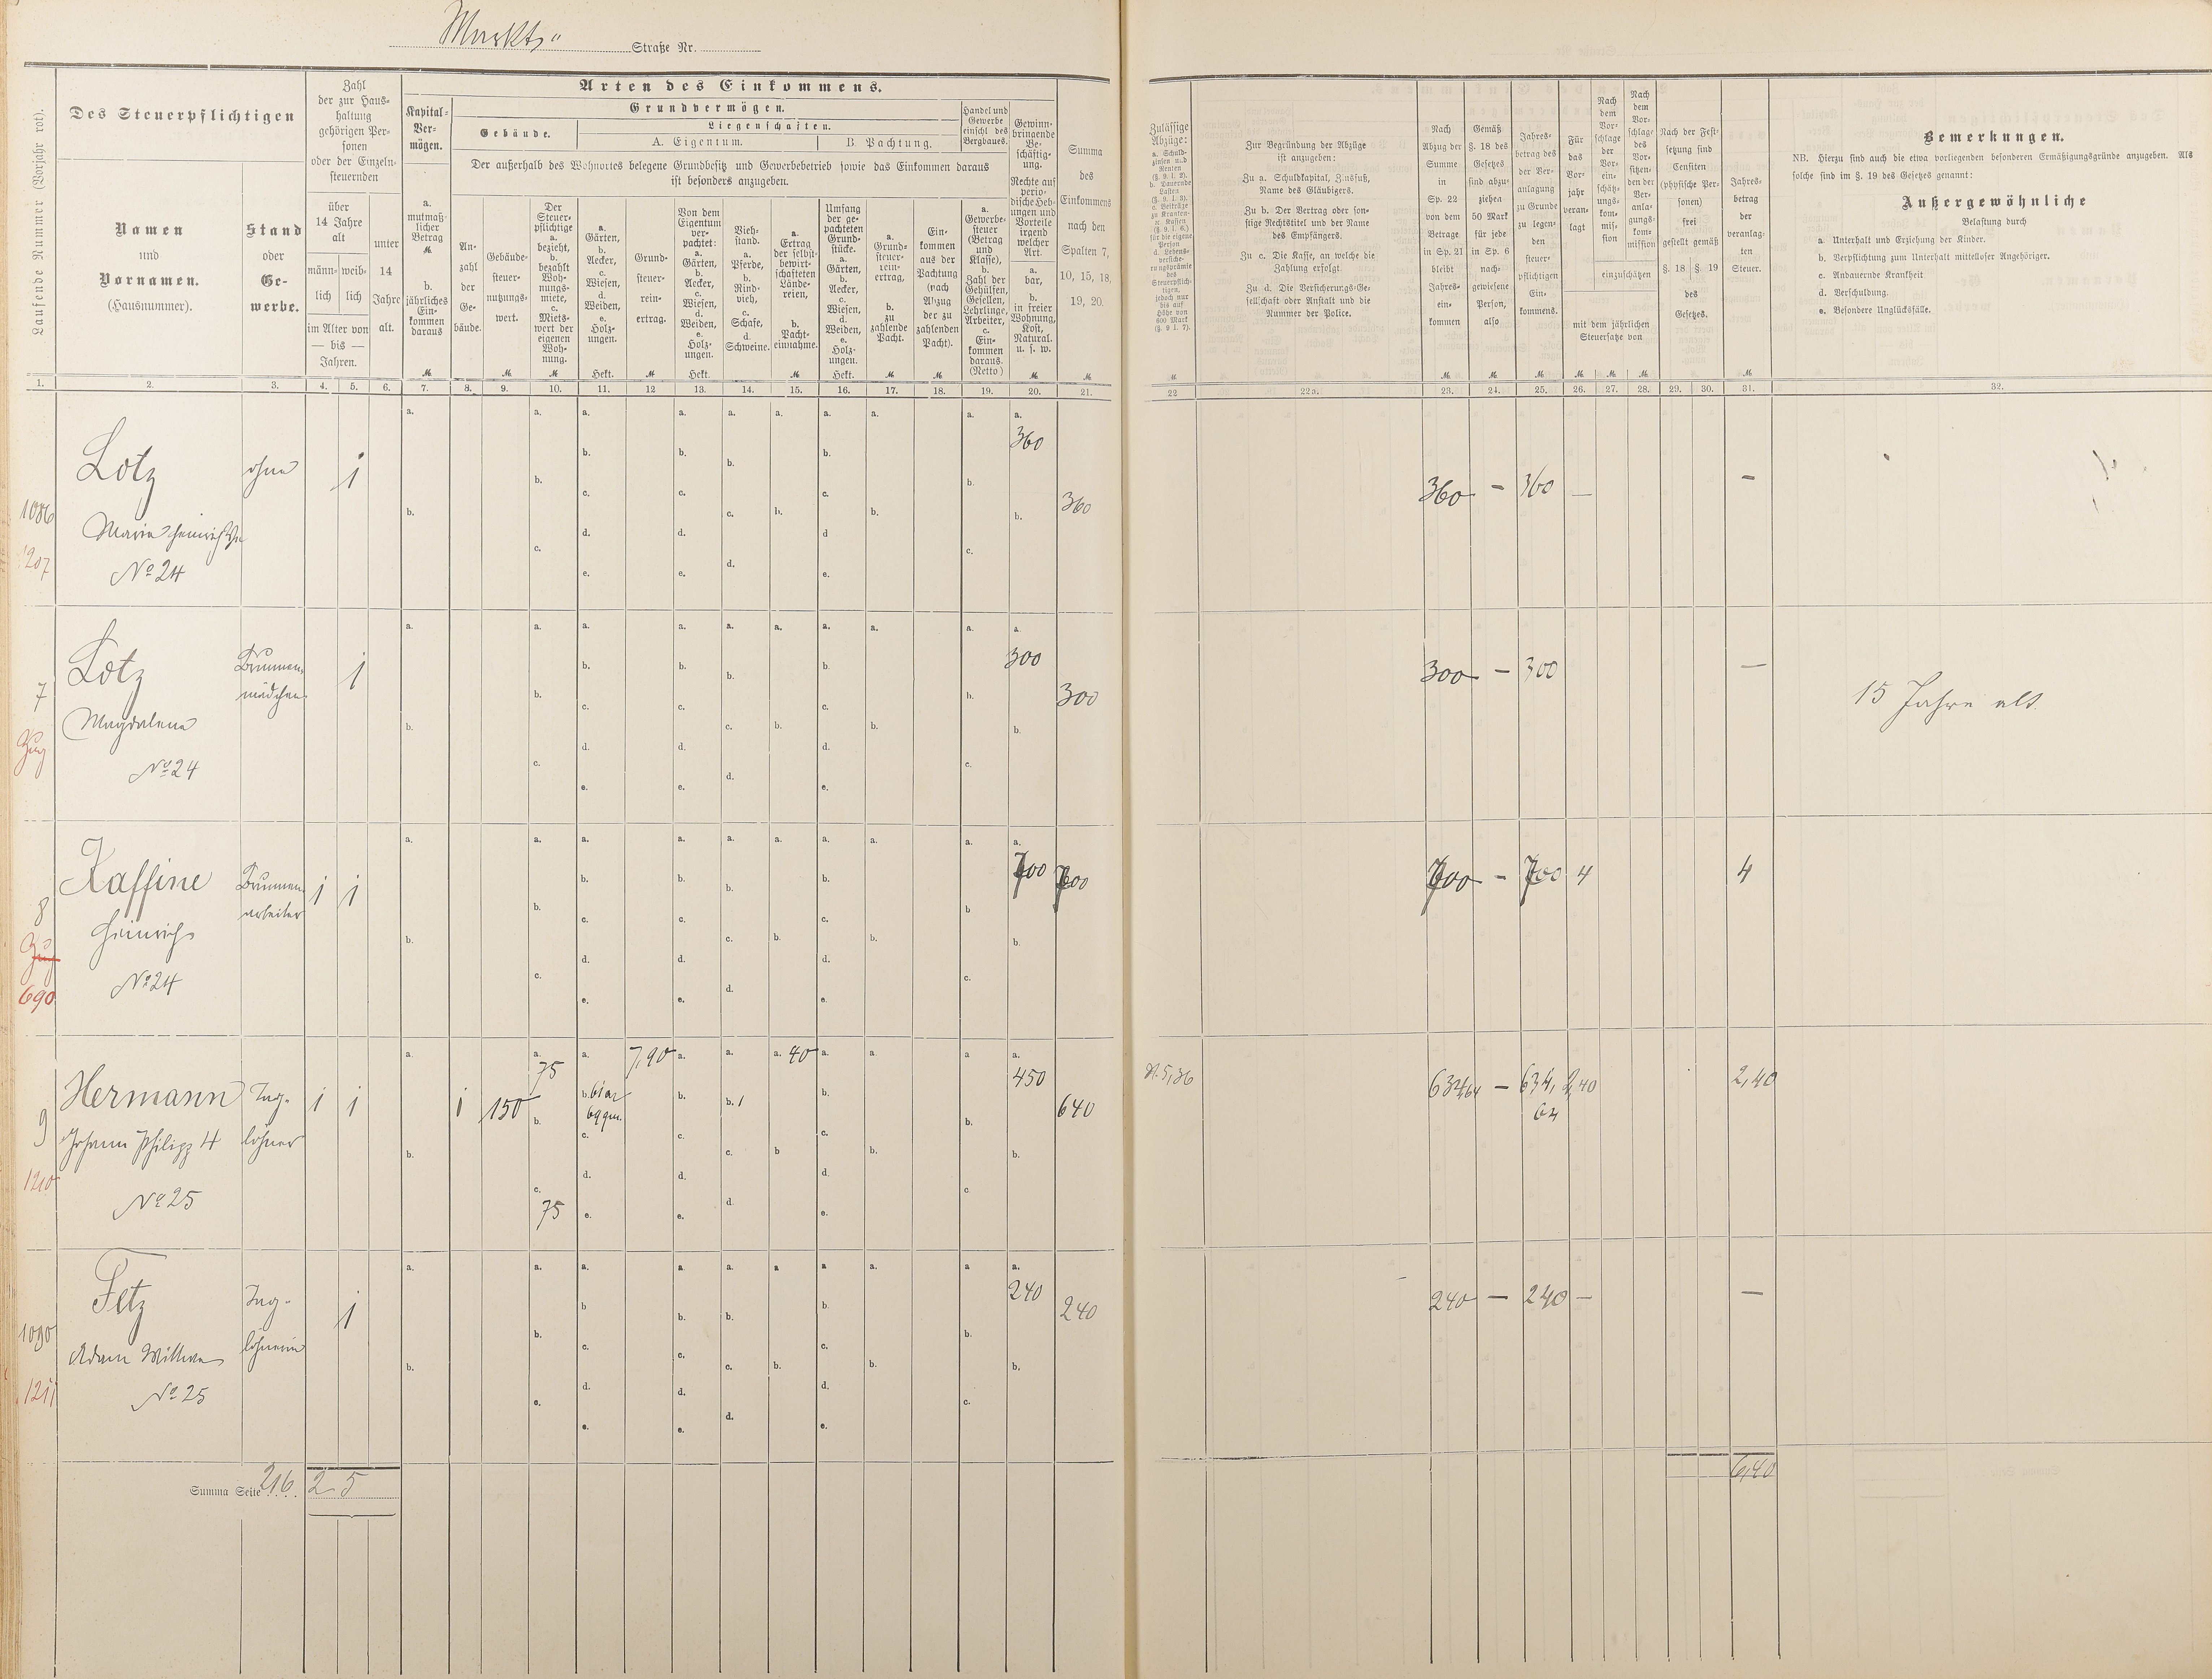 Markts"
Straße Nr.
Laufende Nummer (Vorjahr rot).
Des Steuerpflichtigen
Namen
und
Vornamen.
(Hausnummer).
Stand
oder
Ge-
werbe.
Zahl
der zur Haus-
haltung
gehörigen Per-
sonen
oder der Einzeln-
steuernden
über
14 Jahre
alt
männ-
lich
weib-
lich
im Alter von
— bis —
Jahren.
unter
14
Jahre
alt.
Arten des Einkommens.
Kapital-
Ver-
mögen.
a.
mutmaß-
licher
Betrag
M.
b.
jährliches
Ein-
kommen
daraus
M.
Grundvermögen.
Gebäude.
Liegenschaften.
A. Eigentum.
B. Pachtung.
Der außerhalb des Wohnortes belegene Grundbesitz und Gewerbebetrieb sowie das Einkommen daraus
ist besonders anzugeben.
An-
zahl
der
Ge-
bäude.
Gebäude-
steuer-
nutzungs-
wert.
M.
Der
Steuer-
pflichtige
a.
bezieht,
b.
bezahlt
Woh-
nungs-
miete,
c.
Miets-
wert der
eigenen
Woh-
nung.
M.
a.
Gärten,
b.
Aecker,
c.
Wiesen,
d.
Weiden,
e.
Holz-
ungen.
Hekt.
Grund-
steuer-
rein-
ertrag.
M.
Von dem
Eigentum
ver-
pachtet:
a.
Gärten,
b.
Aecker,
c.
Wiesen,
d.
Weiden,
e.
Holz-
ungen.
Hekt.
Vieh-
stand.
a.
Pferde,
b.
Rind-
vieh,
c.
Schafe,
d.
Schweine.
a.
Ertrag
der selbst-
bewirt-
schafteten
Lände-
reien,
b.
Pacht-
einnahme.
M.
Umfang
der ge-
pachteten
Grund-
stücke.
a.
Gärten,
b.
Aecker,
c.
Wiesen,
d.
Weiden,
e.
Holz-
ungen.
Hekt.
a.
Grund-
steuer-
rein-
ertrag,
b.
zu
zahlende
Pacht.
M.
Ein-
kommen
aus der
Pachtung
(nach
Abzug
der zu
zahlenden
Pacht).
M.
Handel und
Gewerbe
einschl. des
Bergbaues.
a.
Gewerbe-
steuer
(Betrag
und
Klasse),
b.
Zahl der
Gehülfen,
Gesellen,
Lehrlinge,
Arbeiter,
c.
Ein-
kommen
daraus.
(Netto)
Gewinn-
bringende
Be-
schäftig-
ung.
Rechte auf
perio-
dische Heb-
ungen und
Vorteile
irgend
welcher
Art.
a.
bar,
b.
in freier
Wohnung,
Kost,
Natural.
u. s. w.
M.
Summa
des
Einkommens
nach den
Spalten 7,
10, 15, 18,
19, 20.
M.
Zulässige
Abzüge:
a. Schuld-
zinsen und
Renten
(§. 9. I. 2).
b. Dauernde
Lasten
(§. 9. I. 3).
c. Beiträge
zu Kranken-
2c. Kassen
(§. 9. I. 6.)
für die eigene
Person
d. Lebens-
versiche-
rungsprämie
des
Steuerpflich-
tigen,
jedoch nur
bis zur
Höhe von
600 Mark
(§. 9 I. 7).
M.
Zur Begründung der Abzüge
ist anzugeben:
Zu a. Schuldkapital, Zinsfuß,
Name des Gläubigers.
Zu b. Der Vertrag oder son-
stige Rechtstitel und der Name
des Empfängers.
Zu c. Die Kasse, an welche die
Zahlung erfolgt.
Zu d. Die Versicherungs-Ge-
sellschaft oder Anstalt und die
Nummer der Police.
Nach
Abzug der
Summe
in
Sp. 22
von dem
Betrage
in Sp. 21
bleibt
Jahres-
ein-
kommen
M.
Gemäß
§. 18 des
Gesetzes
sind abzu-
ziehen
50 Mark
für jede
in Sp. 6
nach-
gewiesene
Person,
also
M.
Jahres-
betrag des
der Ver-
anlagung
zu Grunde
zu legen-
den
steuer-
pflichtigen
Ein-
kommens.
M.
Für
das
Vor-
jahr
veran-
lagt
Nach
dem
Vor-
schlage
der
Vor-
ein-
schätz-
ungs-
kom-
mis-
sion
Nach
dem
Vor-
schlage
des
Vor-
sitzen-
den der
Ver-
anla-
gungs-
kom-
mission
einzuschätzen
mit dem jährlichen
Steuersatze von
M. M. M.
Nach der Fest-
setzung sind
Censiten
(physische Per-
sonen)
frei
gestellt gemäß
§. 18
§. 19
des
Gesetzes.
Jahres-
betrag
der
veranlag-
ten
Steuer.
M.
Bemerkungen.
NB. Hierzu sind auch die etwa vorliegenden besonderen Ermäßigungsgründe anzugeben. Als
solche sind im §. 19 des Gesetzes genannt:
Außergewöhnliche
Belastung durch
a. Unterhalt und Erziehung der Kinder.
b. Verpflichtung zum Unterhalt mittelloser Angehöriger.
c. Andauernde Krankheit
d. Verschuldung.
e. Besondere Unglücksfälle.
1. 2. 3. 4. 5. 6. 7. 8. 9. 10. 11. 12 13. 14. 15. 16. 17. 18. 19. 20. 21. 22 22a. 23. 24. 25. 26. 27. 28. 29. 30. 31. 32.
1086
1207
Lotz
Marie Heinrich
No 24
ohne
1
360
360
360 — 360 — —
7
Zug
Lotz
Magdalena
No 24
Brunnen-
mädchen
1
300
300
300 — 300 —
15 Jahre alt.
8
Zug
690
Kaffine
Heinrich
No 24
Brunnen-
arbeiter
1 1
700 700
700 — 700 4 4
9
1210
Hermann
Johann Philipp 4
No 25
Tag-
löhner
1 1
1 150
75
75
61 ar
69 qm.
7,90
1
40
450
640
5,36
634,64 — 634,64 2,40 2,40
1090
1211
Fetz
Adam Wittwe
No 25
Tag-
löhnerin
1
240
240
240 — 240 — —
Summa Seite 216. 2 5
6,40